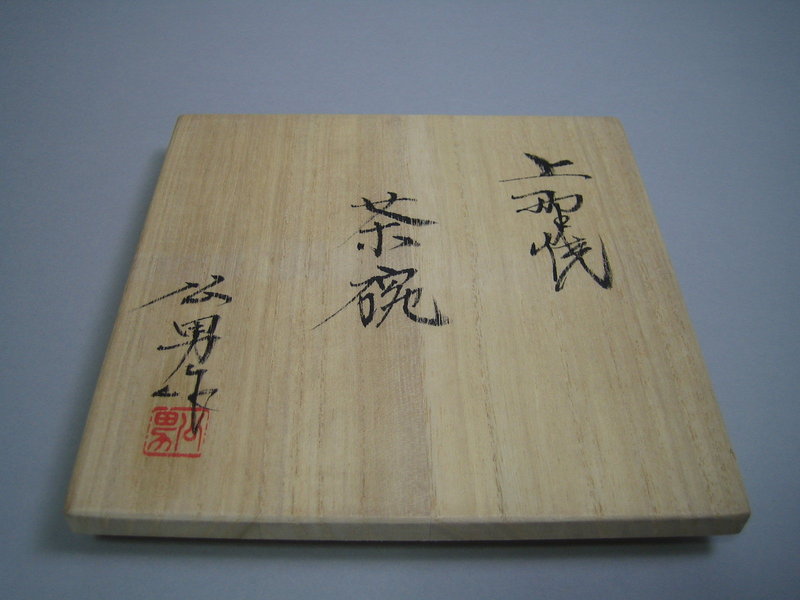 上野焼
茶碗
公男作
公男